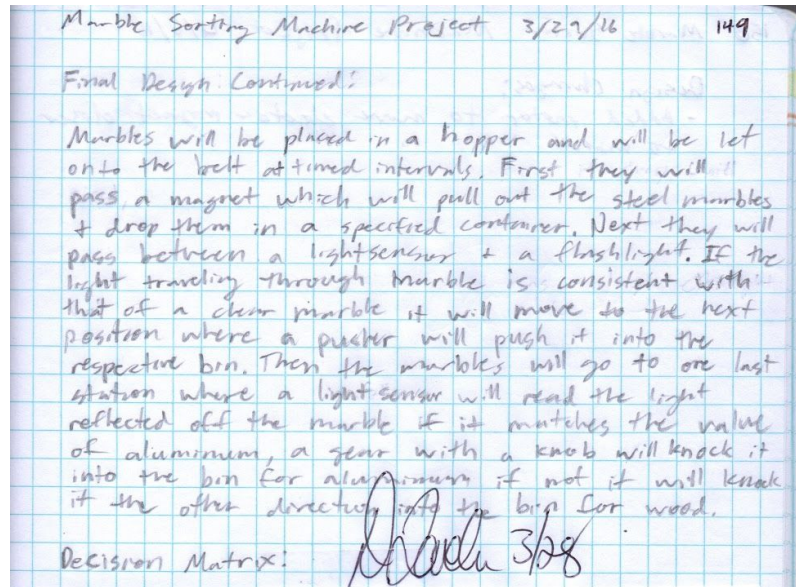 Marble Sorting Machine Project 3/29/16 149
Final Design Continued:
Marbles will be placed in a hopper and will be let
onto the belt at timed intervals. First they will
pass a magnet which will pull out the steel marbles
+ drop them in a specified container. Next they will
pass between a lightsensor + a flashlight. If the
light traveling through marble is consistent with
that of a clear marble it will move to the next
position where a pusher will push it into the
respective bin. Then the marbles will go to one last
station where a light sensor will read the light
reflected off the marble if it matches the value
of aluminum, a gear with a knob will knock it
into the bin for aluminum if not it will knock
it the other direction into the bin for wood.
Decision Matrix: 3/28